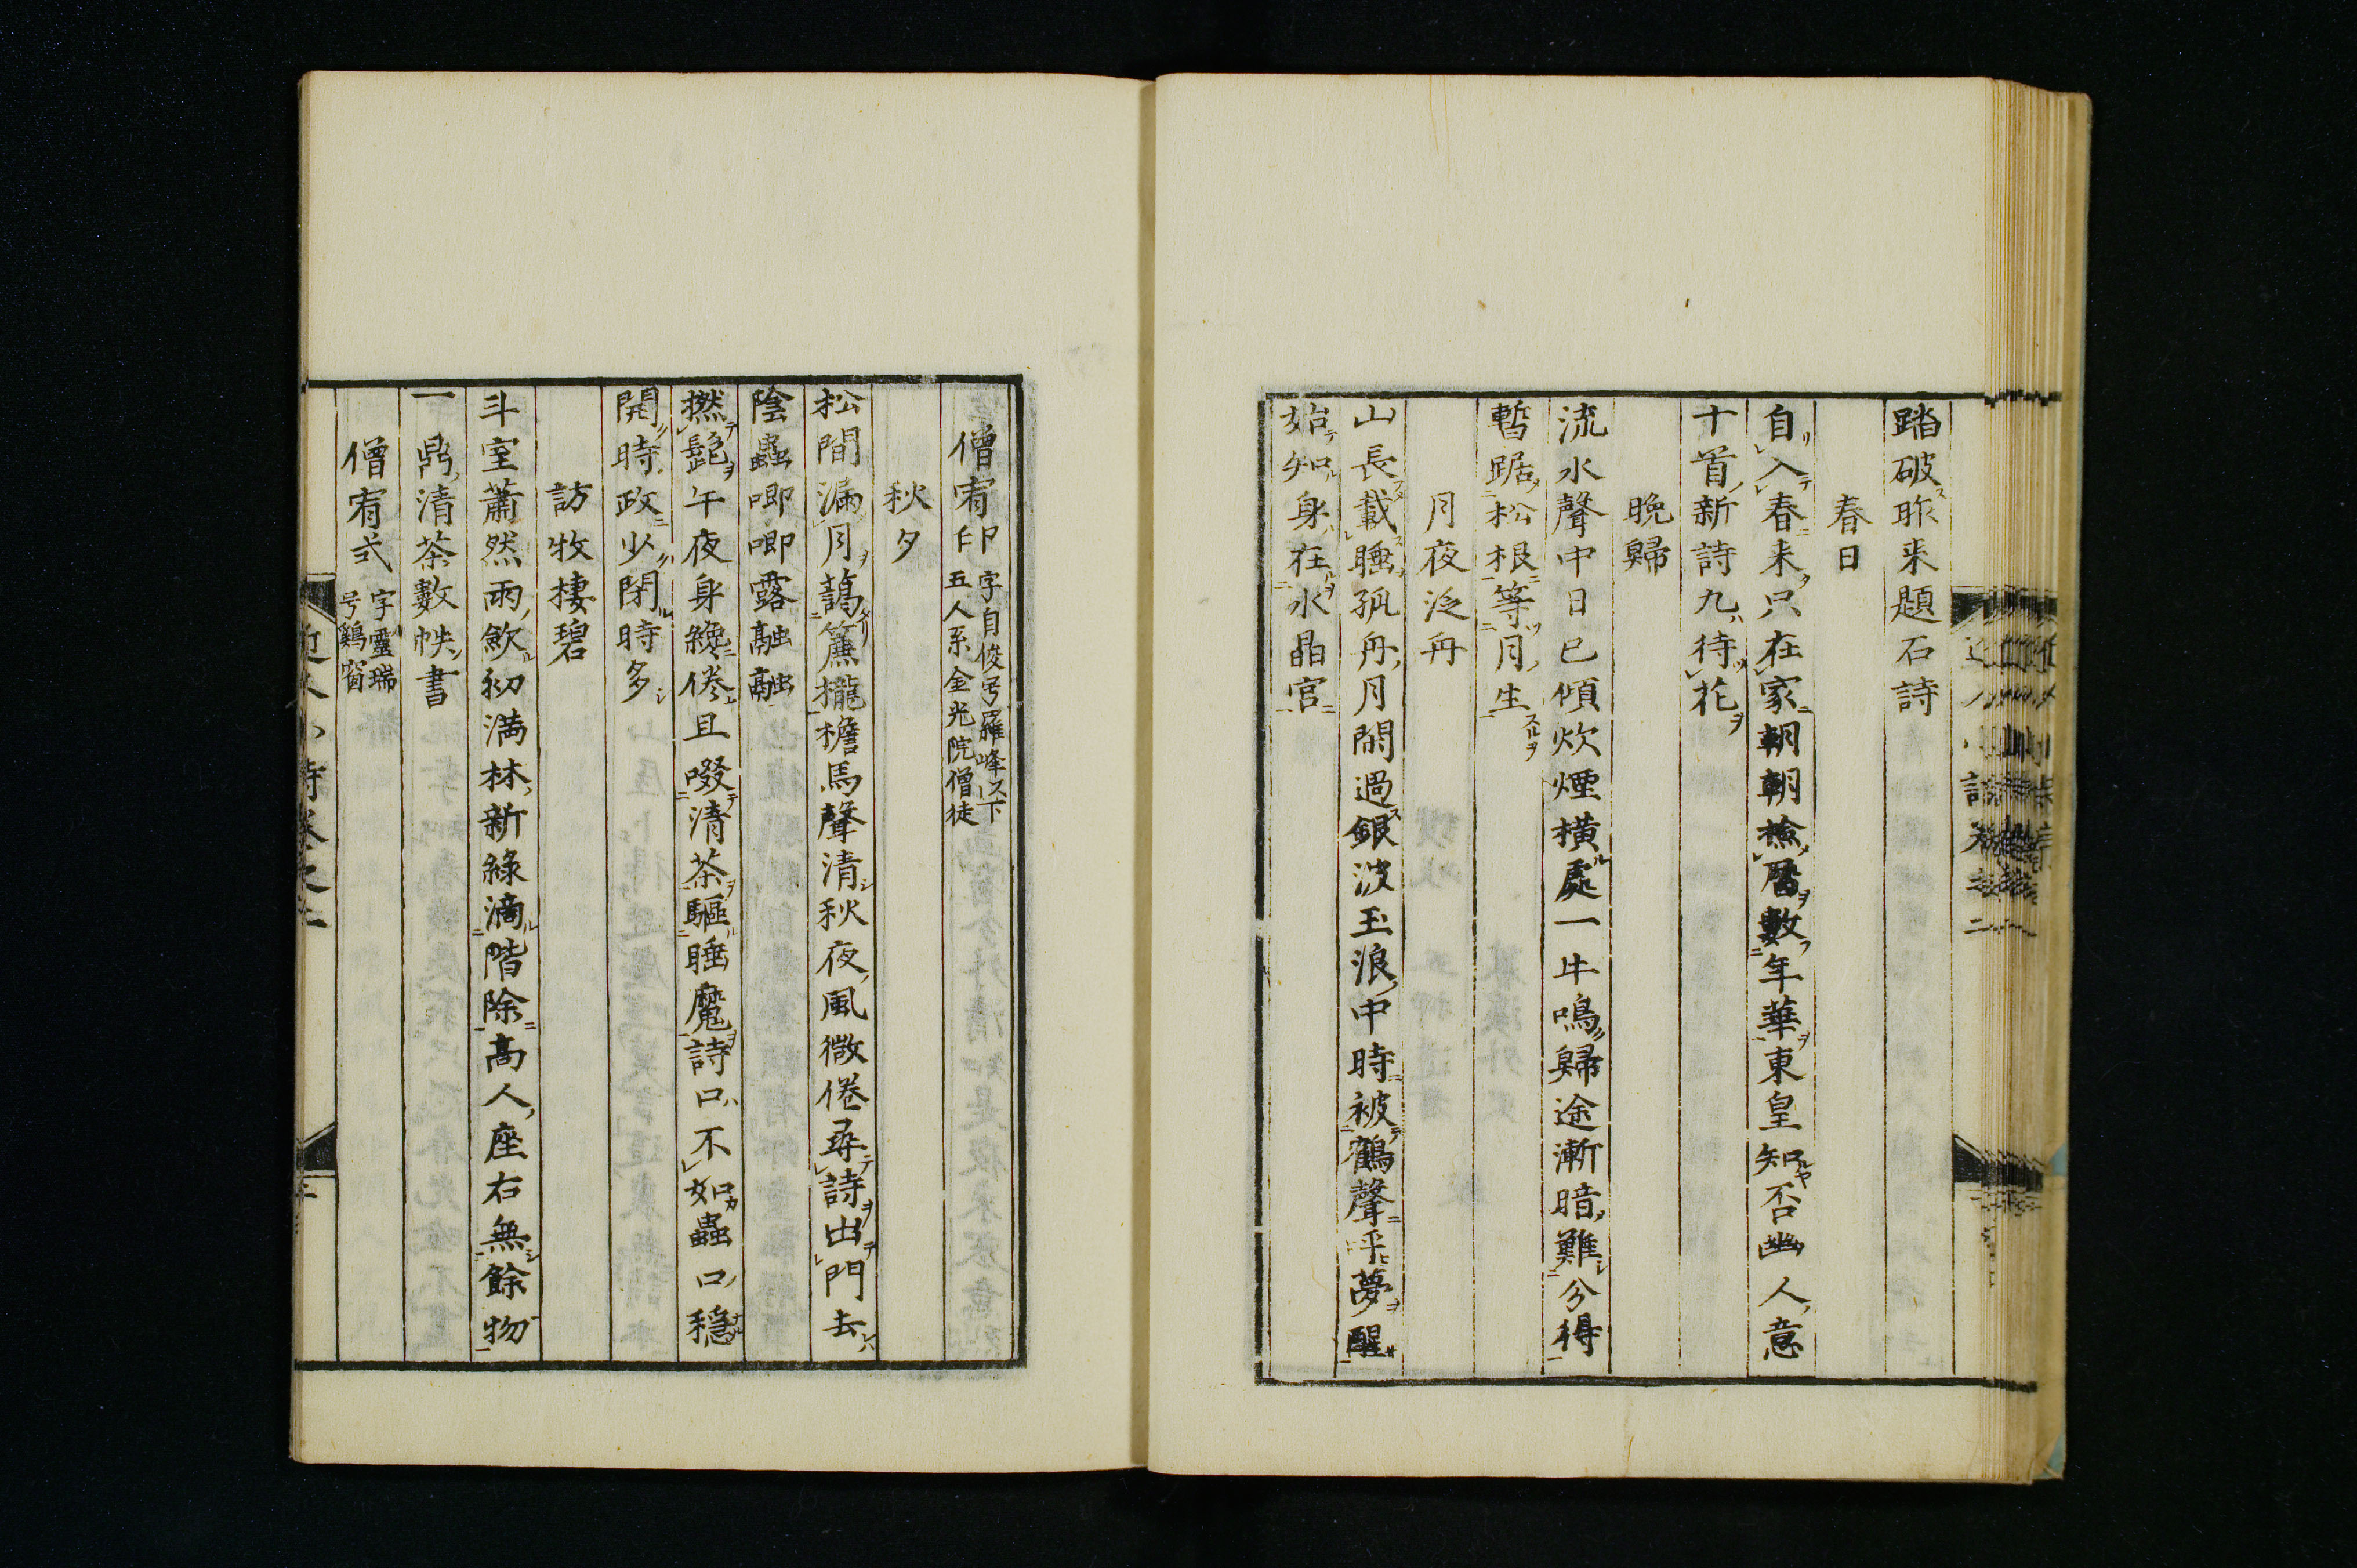 踏破昨来題石詩
春日
自入春来只在家朝朝検暦數年華東皇知否幽人意
十首新詩九待花
晩歸
流水聲中日已傾炊煙横處一牛鳴歸途漸暗難分得
暫踞松根等月生
月夜泛舟
山長載睡孤舟月閙過銀波玉浪中時被鶴聲呼夢醒
始知身在水晶宮
僧宥印 字自俊号羅峰以下
五人系金光院僧徒
秋夕
松間漏月藹簾櫳檐馬聲清秋夜風微倦尋詩出門去
陰蟲唧唧露融融
撚髭午夜身纔倦且啜清茶驅睡魔詩口不如蟲口穏
開時政少閉時多
訪牧棲碧
斗室蕭然雨歛初満林新緑滴階除高人座右無餘物
一鼎清茶數帙書
僧宥弍 字靈瑞
号鷄窗